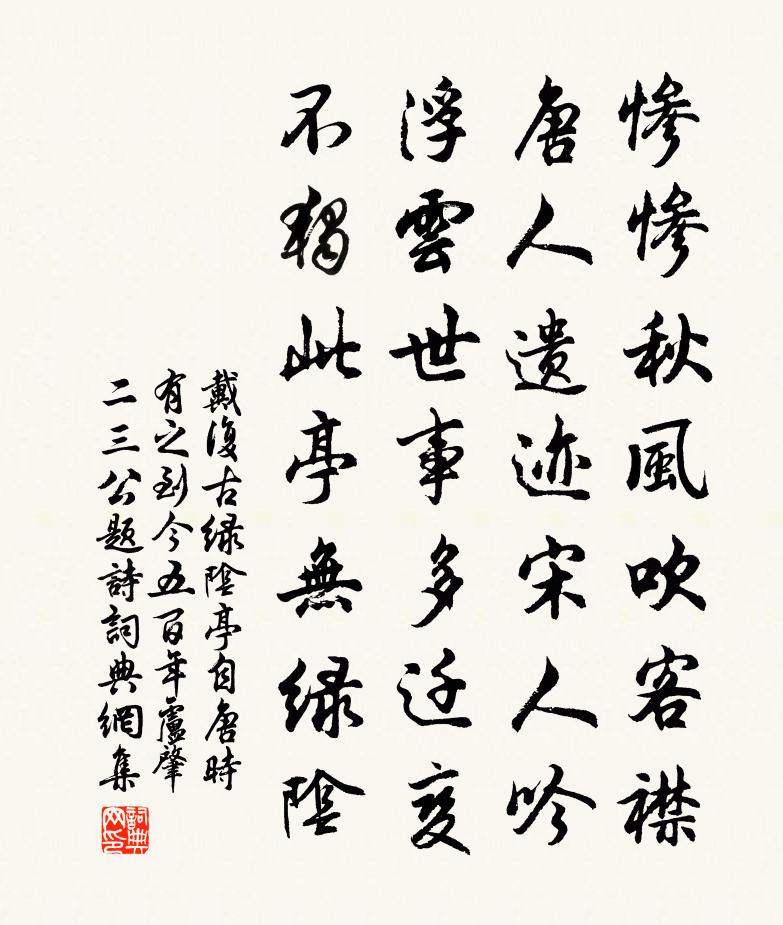 惨惨秋風吹客襟
唐人遗迹宋人吟
浮雲世事多迁変
不獨此亭無緑陰
戴復古緑陰亭自唐時
有之到今五百年盧肇
二三公題詩詞典網集
詞典网印